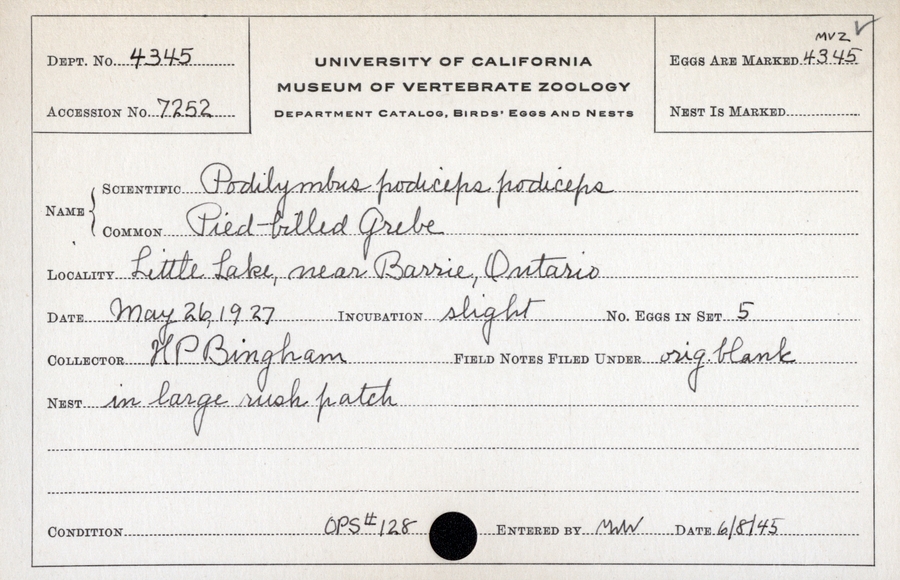 MVZ ✓
Dept. No. 4345
UNIVERSITY OF CALIFORNIA
Eggs Are Marked 4345
MUSEUM OF VERTEBRATE ZOOLOGY
Accession No. 7252
Department Catalog, Birds' Eggs and Nests
Nest Is Marked
Name { Scientific Podilymbus podiceps podiceps
Common Pied-billed Grebe
Locality Little Lake, near Barrie, Ontario
Date May 26, 1927 Incubation slight No. Eggs in Set 5
Collector HP Bingham Field Notes Filed Under orig. blank
Nest in large rush patch
Condition OPS # 128 Entered by Date 6/8/45